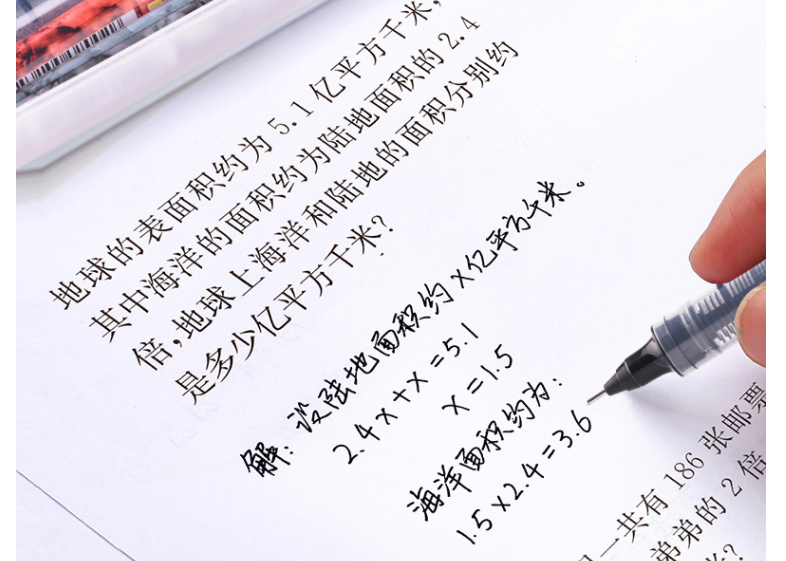 地球的表面积约为 5.1 亿平方千米，
其中海洋的面积约为陆地面积的 2.4
倍,地球上海洋和陆地的面积分别约
是多少亿平方千米?
解: 设陆地面积约 x 亿平方千米。
2.4x+x=5.1
x=1.5
海洋面积约为:
1.5×2.4=3.6
一共有 186 张邮票
弟弟的 2 倍